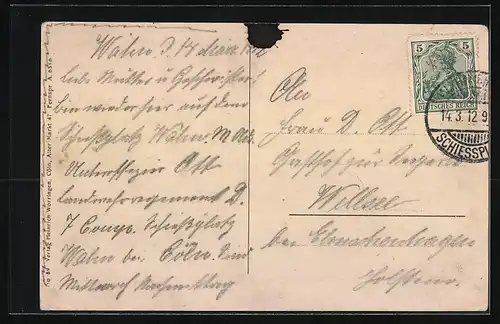 Wahn d. 14 März 1912
Liebe Mutter u Geschwister!
bin wieder hier auf dem
Schießplatz Wahn. M Adr.
Unteroffizier Ott
Landwehrregiment D.
7 Comp. Schießplatz
Wahn bei Cöln.
Mittwoch
An
Frau D. Ott
Gasthof zur
Wellsee
bei Elmschenhagen
Holstein.
5 5
DEUTSCHES REICH
14.3.12.9
SCHIESSPL
Verlag Heinrich Worringen, Cöln, Alter Markt 47, Fernspr. A